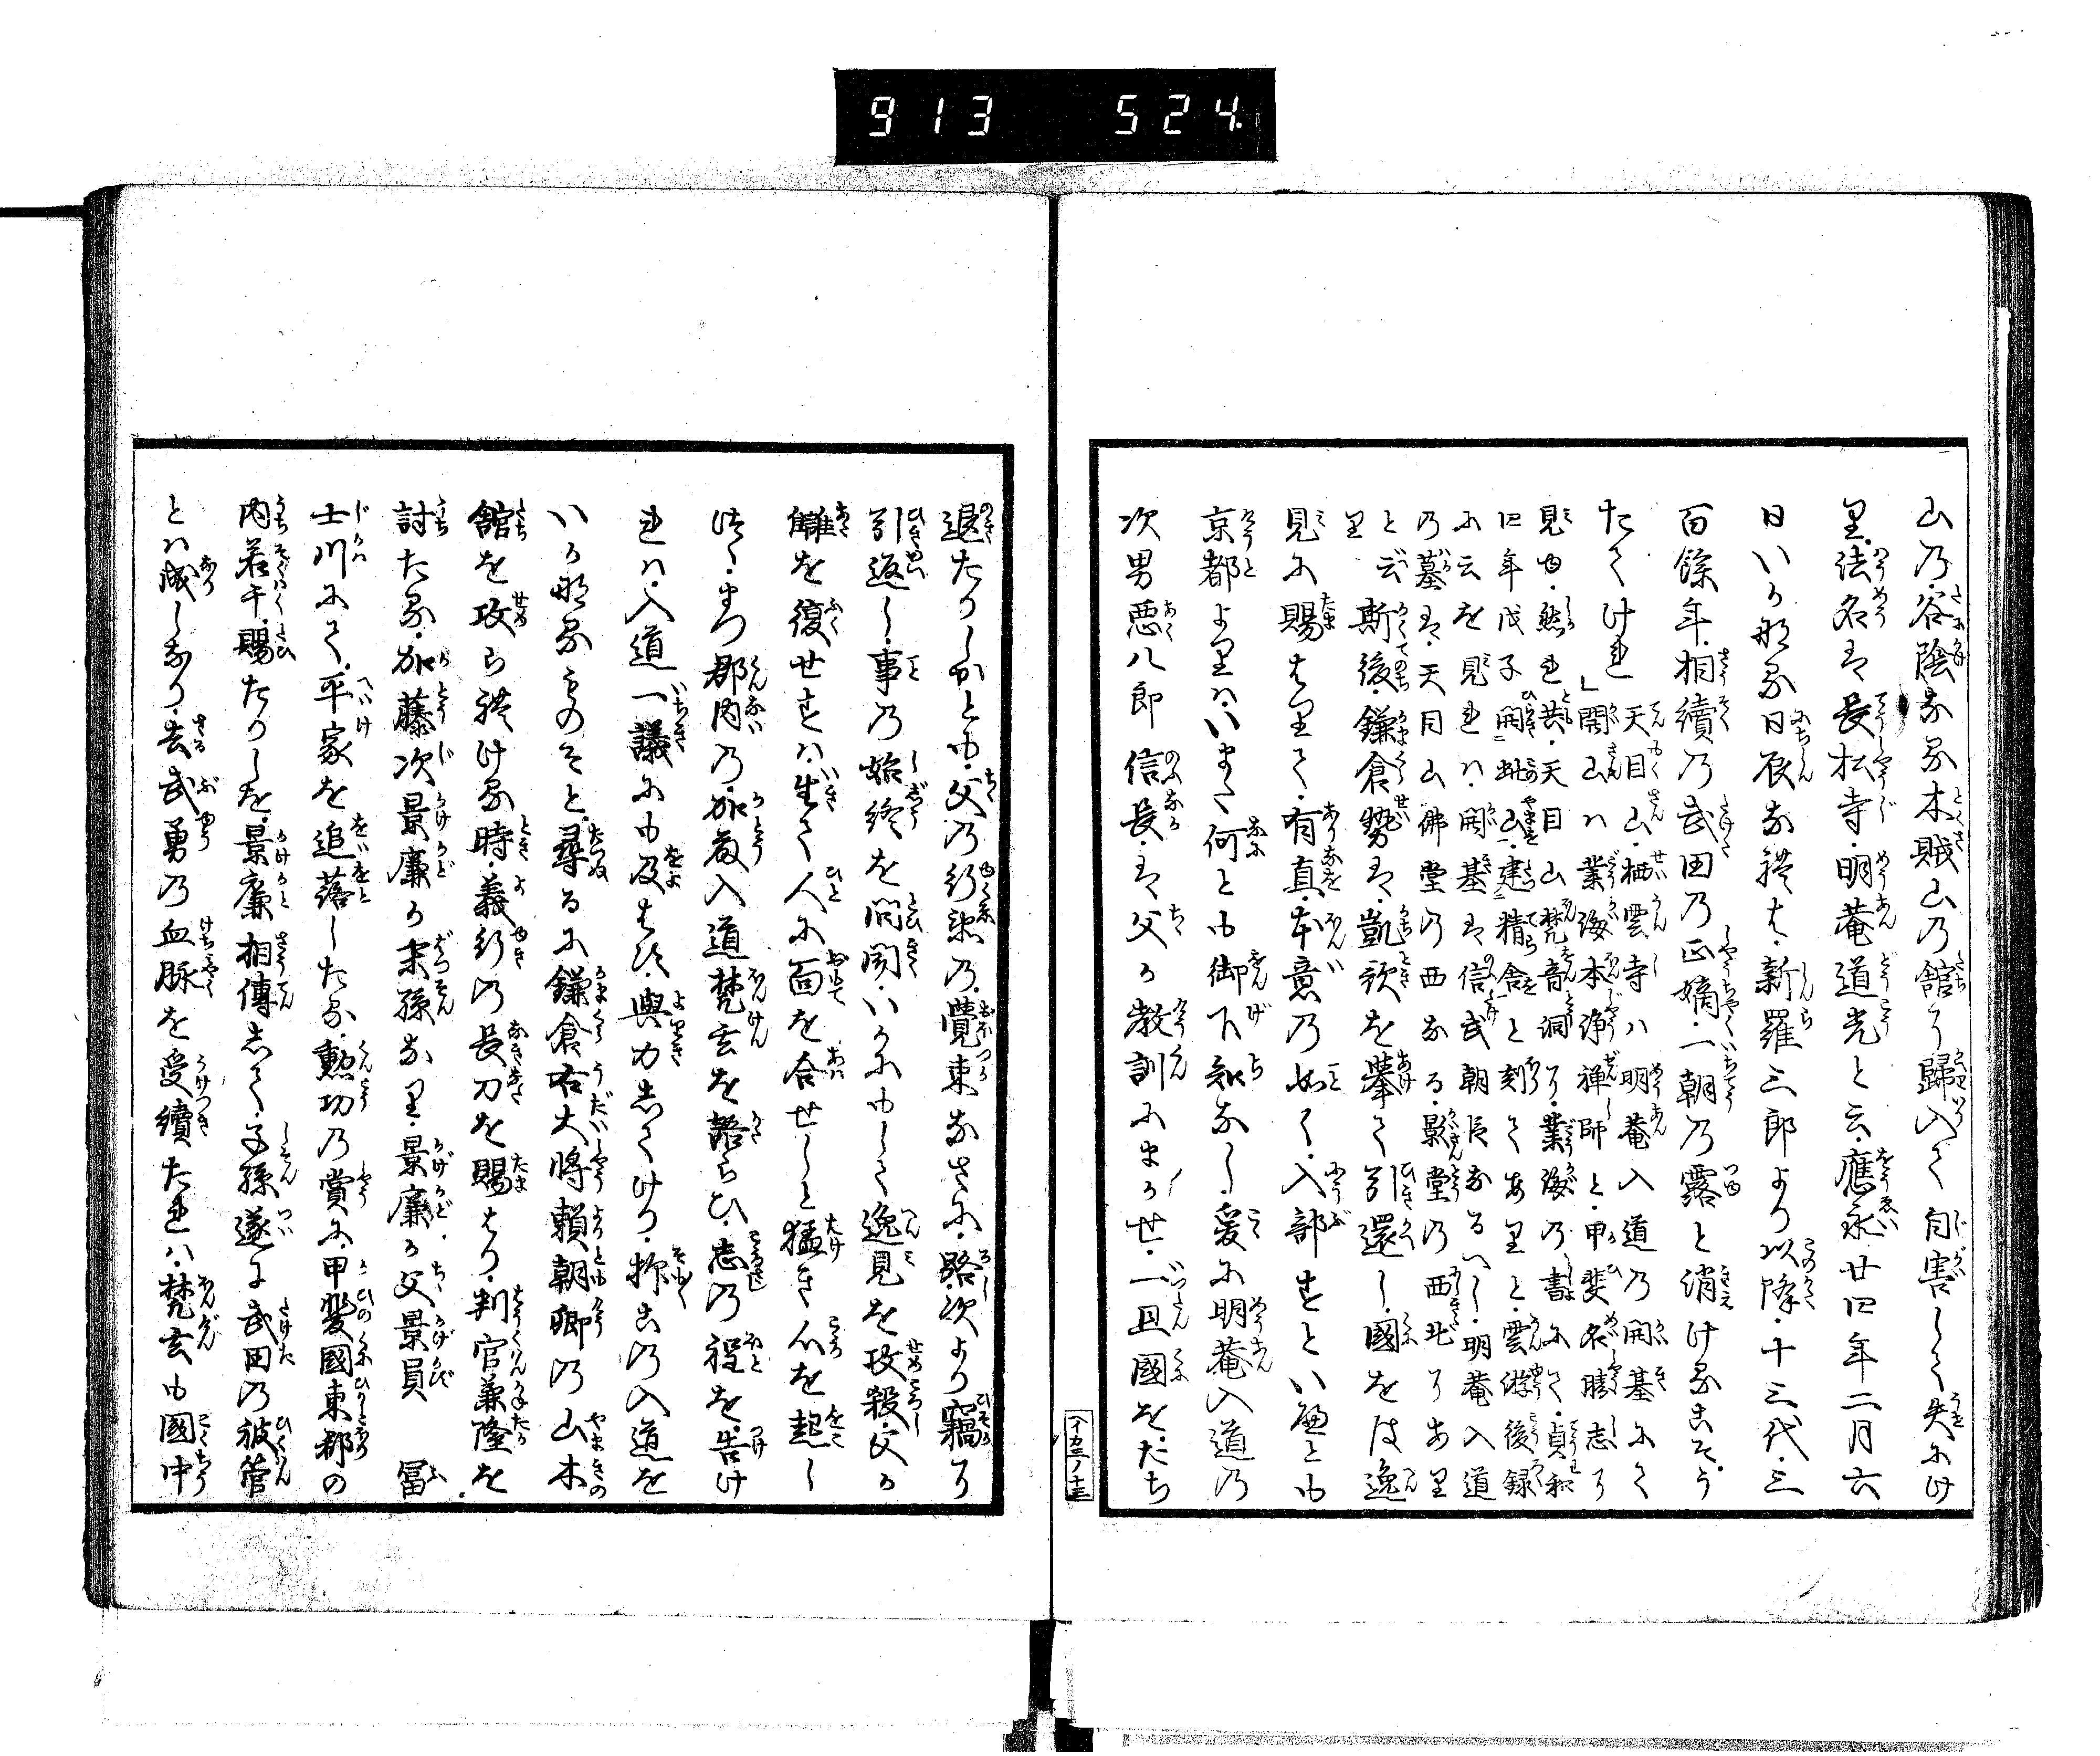 913 524
山乃谷陰なる木賊山乃館に歸入て自害して失にけ
り法名は長松寺明菴道光と云應永廿四年二月六
日いかなる日辰なれは新羅三郎より以降十三代三
百餘年相續乃武田乃正嫡一朝乃露と消けるこそう
たてけれ
天目山栖雲寺ハ明菴入道乃開基にて
開山ハ業海本淨禪師と甲斐名勝志に
見ゆ然れ共天目山梵音洞に業海乃書にて貞和
四年戊子開此山建精舎と刻てありと雲遊後録
に云を見れハ開基は信武朝臣なるへし明菴入道
乃墓は天目山佛堂乃西なる影堂乃西北にあり
と云
斯後鎌倉勢は凱歌を擧て引還し國をは逸
見に賜はりて有直本意乃如く入部すといへとも
京都よりハいまた何とも御下知なし爰に明菴入道乃
次男悪八郎信長は父か教訓にまかせ一旦國をたち
イカ三ノ十三
退たりしかとも父乃行衞乃覺束なさに路次より竊に
引返し事乃始終を問聞いかにもして逸見を攻殺父か
讎を復せすハ生て人に面を合せしと猛き心を起し
つゝまつ郡内乃加藤入道梵玄を語らひ志乃程を告け
れハ入道一議にも及はす與力してけり抑この入道を
いかなるものそと尋るに鎌倉右大將頼朝卿乃山木
館を攻られける時義行乃長刀を賜はり判官兼隆を
討たる加藤次景廉か末孫なり景廉か父景員 冨
士川にて平家を追落したる勲功乃賞に甲斐國東郡の
内若干賜たりしを景廉相傳して子孫遂に武田乃被管
とハ成しなり去武勇乃血脉を受續たれハ梵玄も國中